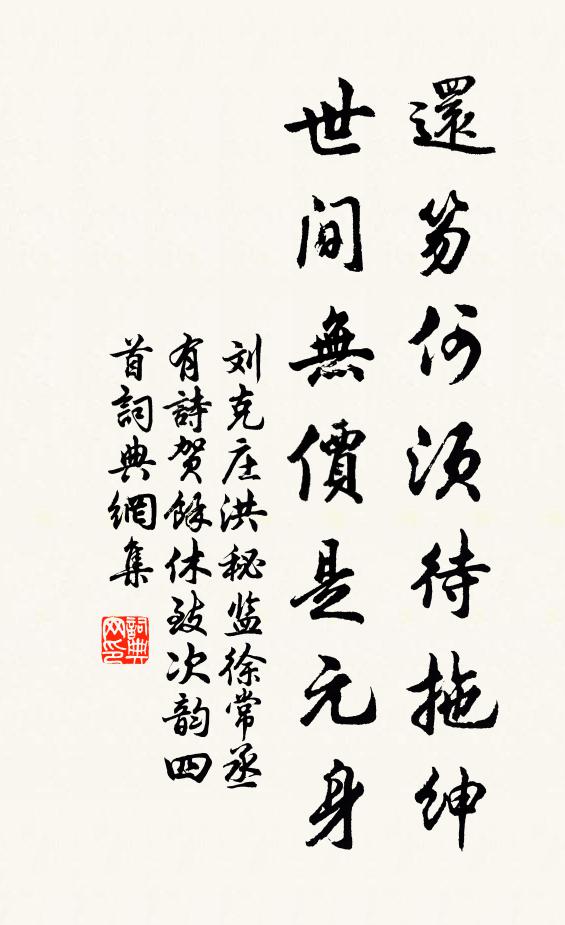 還笏何須待拖紳
世間無價是元身
刘克庄洪秘监徐常丞
有詩贺餘休致次韵四
首詞典網集
詞典网印